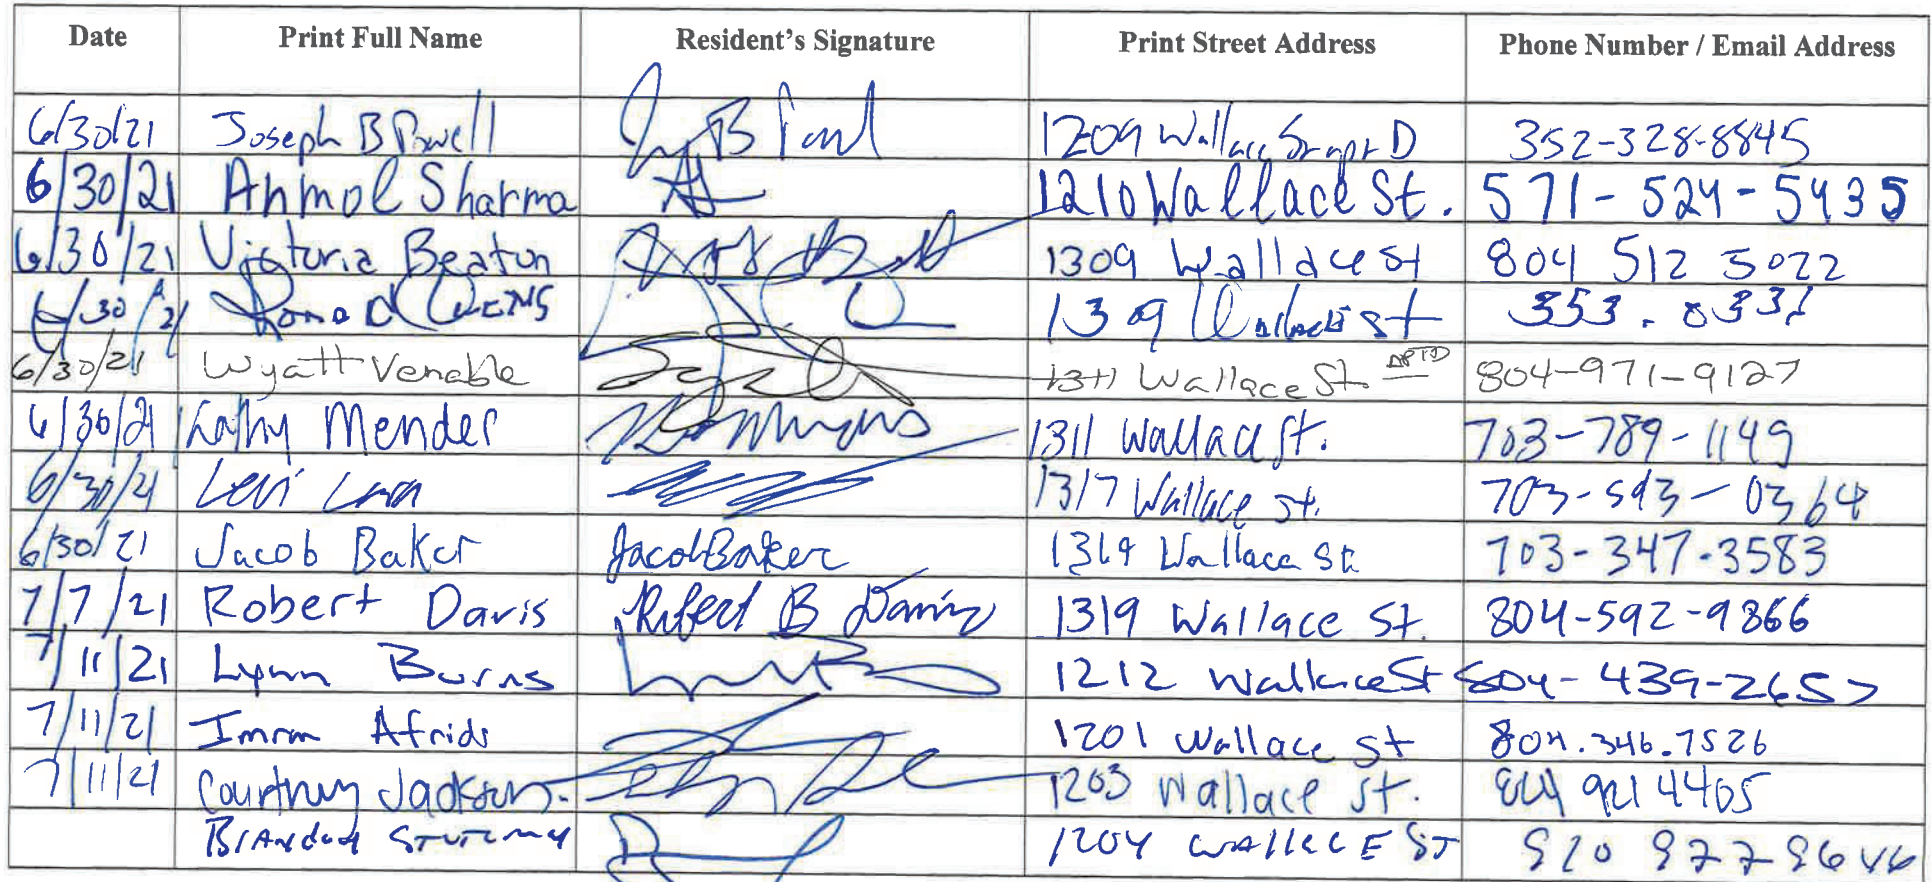 Date Print Full Name Resident's Signature Print Street Address Phone Number / Email Address
6/30/21 Joseph B Powell 1209 Wallace St apt D 352-328-8845
6/30/21 Anmol Sharma 1210 Wallace St. 571-524-5435
6/30/21 Victoria Beaton 1309 Wallace St 804 512 3022
6/30/21 1309 Wallace st 353.0331
6/30/21 Wyatt Venable 1311 Wallace St. APT D 804-971-9127
6/30/21 Kathy Mender 1311 Wallace St. 703-789-1149
6/30/21 Levi 1317 Wallace St. 703-593-0364
6/30/21 Jacob Baker Jacob Baker 1319 Wallace St 703-347-3583
7/7/21 Robert Davis Robert B Davis 1319 Wallace St. 804-592-9866
7/11/21 Lynn Burns 1212 Wallace St 804-439-2657
7/11/21 Imran Afridi 1201 Wallace St 804.346.7526
7/11/21 Courtney Jackson. 1203 Wallace St. 804 921 4405
Brandon 1204 WALLACE ST